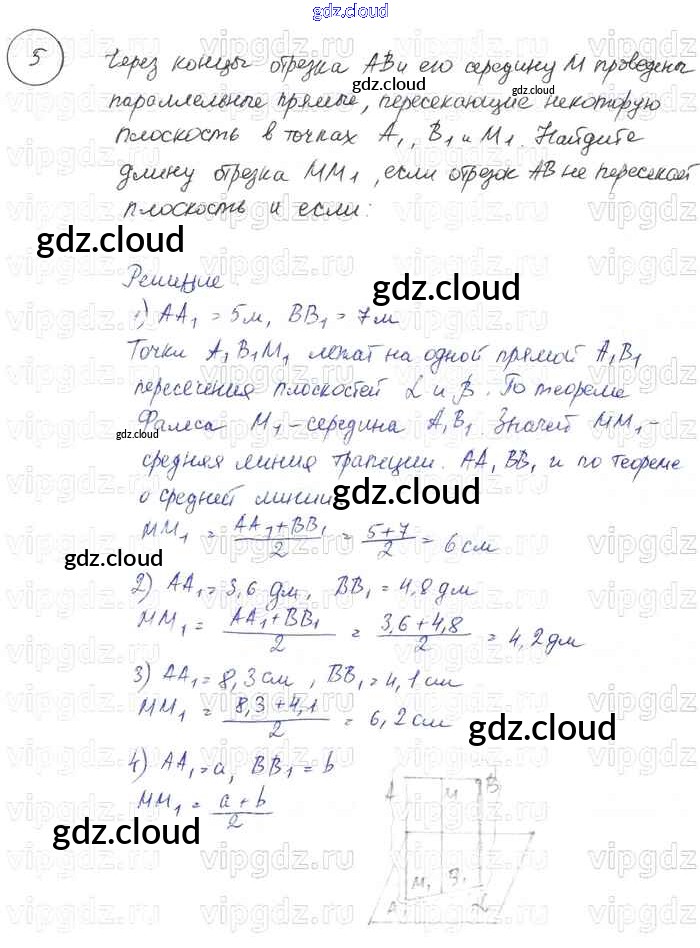 gdz.cloud
5
Через концы отрезка AB и его середину M проведены
параллельные прямые, пересекающие некоторую
плоскость в точках A₁, B₁ и M₁. Найдите
длину отрезка MM₁, если отрезок AB не пересекает
плоскость и если:
Решение
1) AA₁ = 5м, BB₁ = 7м
Точки A₁B₁M₁ лежат на одной прямой A₁B₁
пересечения плоскостей α и β. По теореме
Фалеса M₁-середина A₁B₁. Значит MM₁-
средняя линия трапеции. AA₁BB₁ и по теореме
о средней линии
MM₁ = (AA₁+BB₁)/2 = (5+7)/2 = 6см
2) AA₁=3,6 дм, BB₁=4,8 дм
MM₁ = (AA₁+BB₁)/2 = (3,6+4,8)/2 = 4,2дм
3) AA₁=8,3см, BB₁=4,1см
MM₁ = (8,3+4,1)/2 = 6,2см
4) AA₁=a, BB₁=b
MM₁ = (a+b)/2
A M B
M₁ B₁
A α